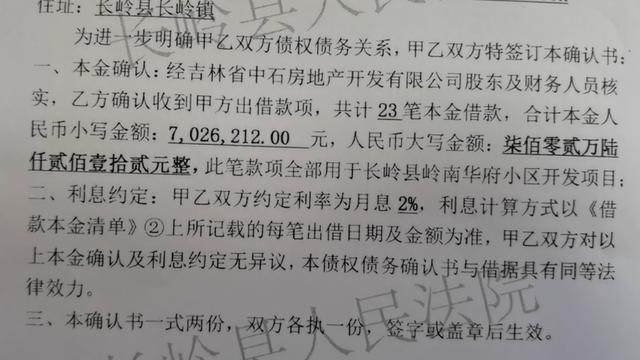 住址：长岭县长岭镇
为进一步明确甲乙双方债权债务关系，甲乙双方特签订本确认书：
一、本金确认：经吉林省中石房地产开发有限公司股东及财务人员核
实，乙方确认收到甲方出借款项，共计 23 笔本金借款，合计本金人
民币小写金额：7,026,212.00 元，人民币大写金额：柒佰零贰万陆
仟贰佰壹拾贰元整，此笔款项全部用于长岭县岭南华府小区开发项目；
二、利息约定：甲乙双方约定利率为月息 2%，利息计算方式以《借
款本金清单》②上所记载的每笔出借日期及金额为准，甲乙双方对以
上本金确认及利息约定无异议，本债权债务确认书与借据具有同等法
律效力。
三、本确认书一式两份，双方各执一份，签字或盖章后生效。
长岭县人民法院
长岭县人民法院